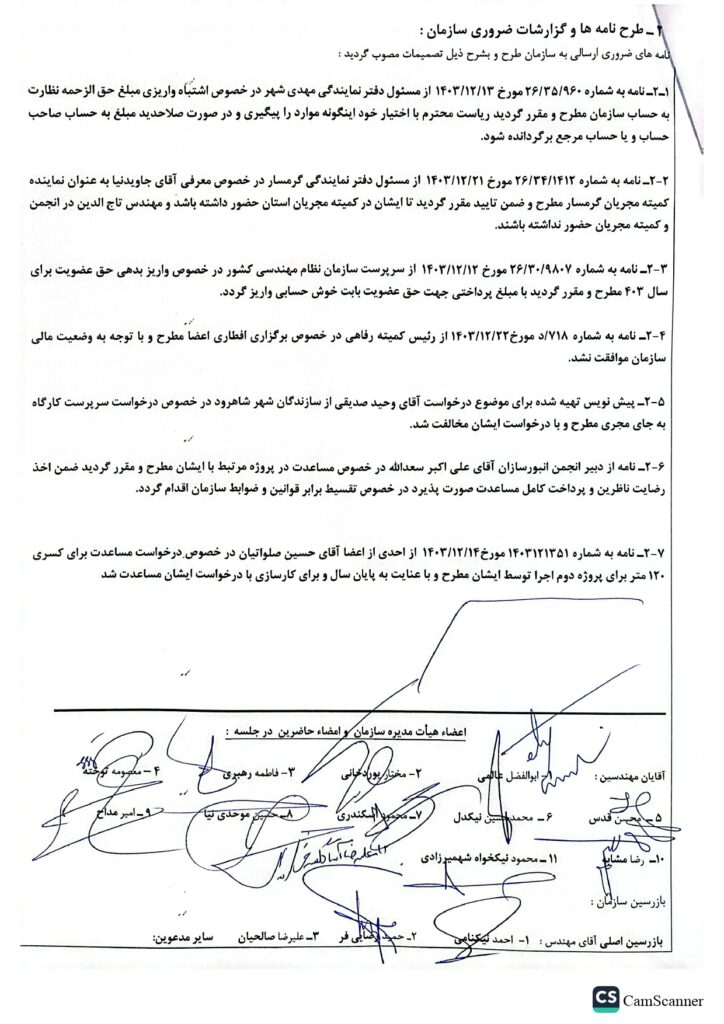 ۲ـ طرح نامه ها و گزارشات ضروری سازمان :
نامه های ضروری ارسالی به سازمان طرح و بشرح ذیل تصمیمات مصوب گردید :
۲ـ۱ـ نامه به شماره ۲۶/۳۵/۹۶۰ مورخ ۱۴۰۳/۱۲/۱۳ از مسئول دفتر نمایندگی مهدی شهر در خصوص اشتباه واریزی مبلغ حق الزحمه نظارت
به حساب سازمان مطرح و مقرر گردید ریاست محترم با اختیار خود اینگونه موارد را پیگیری و در صورت صلاحدید مبلغ به حساب صاحب
حساب و یا حساب مرجع برگردانده شود.
۲-۲ـ نامه به شماره ۲۶/۳۴/۱۴۱۲ مورخ ۱۴۰۳/۱۲/۲۱ از مسئول دفتر نمایندگی گرمسار در خصوص معرفی آقای جاویدنیا به عنوان نماینده
کمیته مجریان گرمسار مطرح و ضمن تایید مقرر گردید تا ایشان در کمیته مجریان استان حضور داشته باشد و مهندس تاج الدین در انجمن
و کمیته مجریان حضور نداشته باشند.
۲-۳ـ نامه به شماره ۲۶/۳۰/۹۸۰۷ مورخ ۱۴۰۳/۱۲/۱۲ از سرپرست سازمان نظام مهندسی کشور در خصوص واریز بدهی حق عضویت برای
سال ۴۰۳ مطرح و مقرر گردید با مبلغ پرداختی جهت حق عضویت بابت خوش حسابی واریز گردد.
۲-۴ـ نامه به شماره ۷۱۸/د مورخ۱۴۰۳/۱۲/۲۲ از رئیس کمیته رفاهی در خصوص برگزاری افطاری اعضا مطرح و با توجه به وضعیت مالی
سازمان موافقت نشد.
۲-۵ـ پیش نویس تهیه شده برای موضوع درخواست آقای وحید صدیقی از سازندگان شهر شاهرود در خصوص درخواست سرپرست کارگاه
به جای مجری مطرح و با درخواست ایشان مخالفت شد.
۲-۶ـ نامه از دبیر انجمن انبورسازان آقای علی اکبر سعدالله در خصوص مساعدت در پروژه مرتبط با ایشان مطرح و مقرر گردید ضمن اخذ
رضایت ناظرین و پرداخت کامل مساعدت صورت پذیرد در خصوص تقسیط برابر قوانین و ضوابط سازمان اقدام گردد.
۲-۷ـ نامه به شماره ۱۴۰۳۱۲۱۳۵۱ مورخ۱۴۰۳/۱۲/۱۴ از احدی از اعضا آقای حسین صلواتیان در خصوص درخواست مساعدت برای کسری
۱۲۰ متر برای پروژه دوم اجرا توسط ایشان مطرح و با عنایت به پایان سال و برای کارسازی با درخواست ایشان مساعدت شد
اعضاء هیأت مدیره سازمان و امضاء حاضرین در جلسه :
آقایان مهندسین : ۱- ابوالفضل عالمی ۲- مختار پوردخانی ۳- فاطمه رهبری ۴- معصومه توخته
۵ـ محسن قدس ۶ ـ محمدحسین نیکدل ۷ـ محمود اسکندری ۸ـ حسین موحدی نیا ۹ـ امیر مداح
۱۰ـ رضا مشایه ۱۱ ـ محمود نیکخواه شهمیرزادی
بازرسین سازمان :
بازرسین اصلی آقای مهندس : ۱- احمد نیکنامی ۲ـ حمید رضایی فر ۳ـ علیرضا صالحیان سایر مدعوین:
CS CamScanner